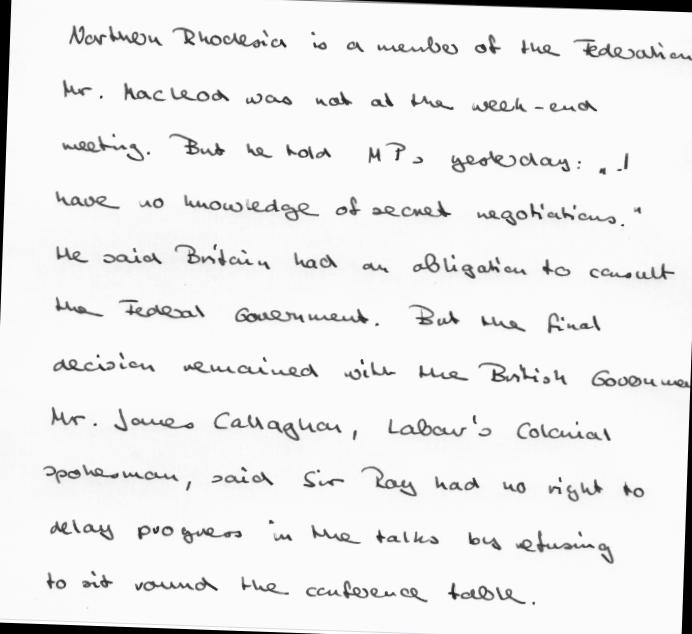 Northern Rhodesia is a member of the Federation
Mr. Macleod was not at the week-end
meeting. But he told MPs yesterday: "I
have no knowledge of secret negotiations."
He said Britain had an obligation to consult
the Federal Government. But the final
decision remained with the British Governme
Mr. James Callaghan, Labour's Colonial
spokesman, said Sir Roy had no right to
delay progress in the talks by refusing
to sit round the conference table.